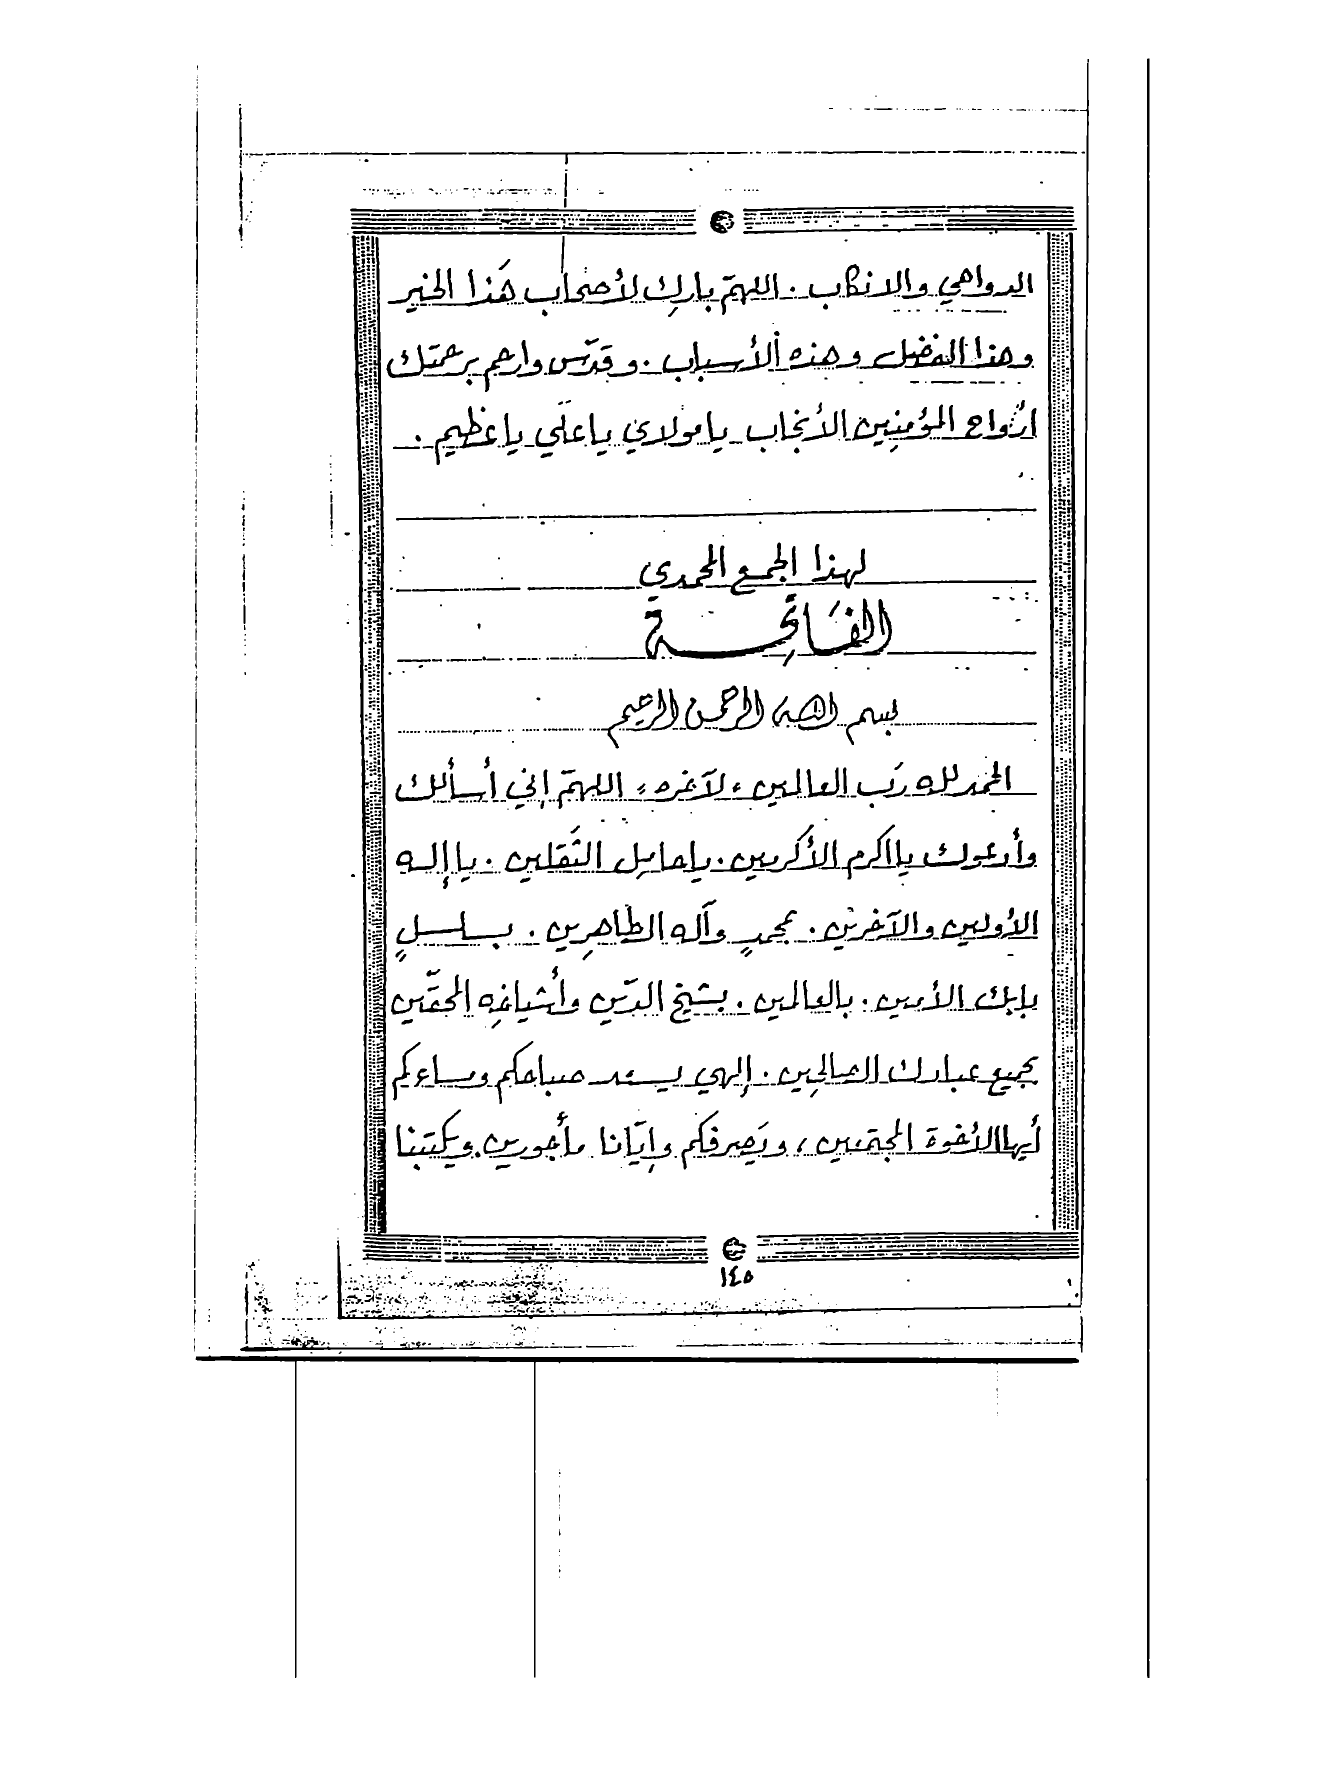 الدواهي والانكاب . اللهمّ بارك لأصحاب هَذا الخير
وهذا الفضل وهذه الأسباب . وقدّس وارحم برحمتك
ارْواح المؤمنين الأنجاب يا مولاي يا عَلّي يا عَظيم .
لهذا الجمع المحمدي
الفَاتحة
بسم الله الرحمن الرحيم
الحمد لله رَب العالمين ، لآخره ، اللهمّ إني أسألك
وأدعوك يا اكرم الأكرمين . يا حامِل الثَقلين . يا إله
الأولين والآخرين . بمحمدٍ وآله الطاهرِين . بسلسلٍ
بابك الأمين . بالعالمين . بشيخ الدّين وأشياخِه المحقّين
بجميع عبادك الصالحِين . إلهي يسعد صباحكم ومساءكم
أيها الأخوة المجتمعين ، ويَصرفكم وإيّانا مأجورين . ويكتبنا
١٤٥